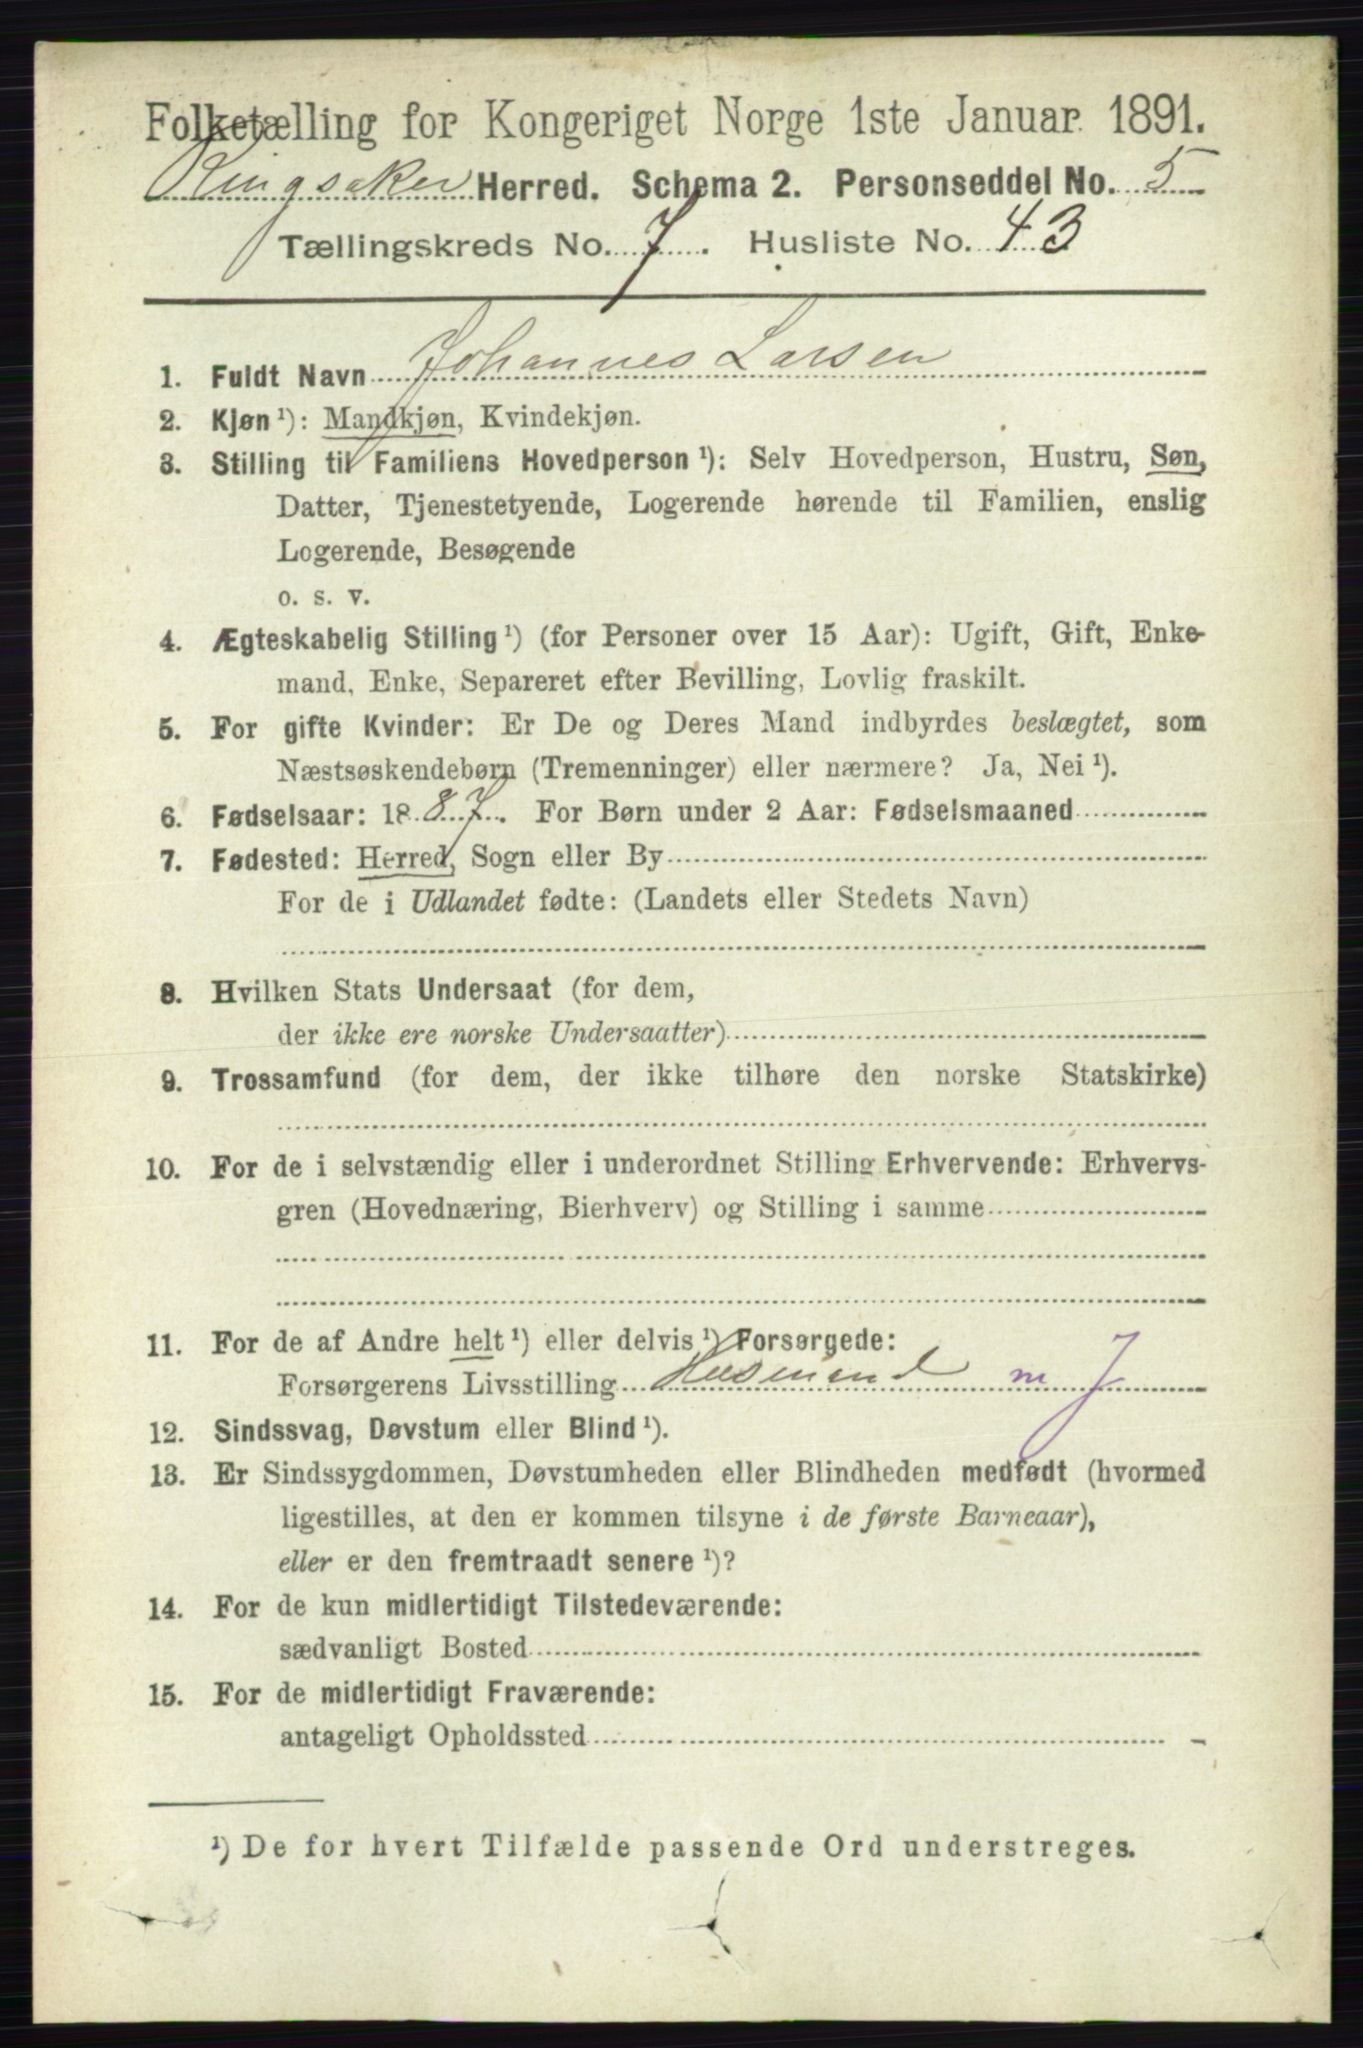 Folketælling for Kongeriget Norge 1ste Januar 1891.
Ringsaker Herred. Schema 2. Personseddel No. 5
Tællingskreds No. 7. Husliste No. 43
1. Fuldt Navn Johannes Larsen
2. Kjøn¹): Mandkjøn, Kvindekjøn.
3. Stilling til Familiens Hovedperson¹): Selv Hovedperson, Hustru, Søn,
Datter, Tjenestetyende, Logerende hørende til Familien, enslig
Logerende, Besøgende
o. s. v.
4. Ægteskabelig Stilling¹) (for Personer over 15 Aar): Ugift, Gift, Enke-
mand, Enke, Separeret efter Bevilling, Lovlig fraskilt.
5. For gifte Kvinder: Er De og Deres Mand indbyrdes beslægtet, som
Næstsøskendebørn (Tremenninger) eller nærmere? Ja, Nei¹).
6. Fødselsaar: 1887. For Børn under 2 Aar: Fødselsmaaned
7. Fødested: Herred, Sogn eller By
For de i Udlandet fødte: (Landets eller Stedets Navn)
8. Hvilken Stats Undersaat (for dem,
der ikke ere norske Undersaatter)
9. Trossamfund (for dem, der ikke tilhøre den norske Statskirke)
10. For de i selvstændig eller i underordnet Stilling Erhvervende: Erhvervs-
gren (Hovednæring, Bierhverv) og Stilling i samme
11. For de af Andre helt¹) eller delvis¹) Forsørgede:
Forsørgerens Livsstilling Husmand m J
12. Sindssvag, Døvstum eller Blind¹).
13. Er Sindssygdommen, Døvstumheden eller Blindheden medfødt (hvormed
ligestilles, at den er kommen tilsyne i de første Barneaar),
eller er den fremtraadt senere¹)?
14. For de kun midlertidigt Tilstedeværende:
sædvanligt Bosted
15. For de midlertidigt Fraværende:
antageligt Opholdssted
¹) De for hvert Tilfælde passende Ord understreges.